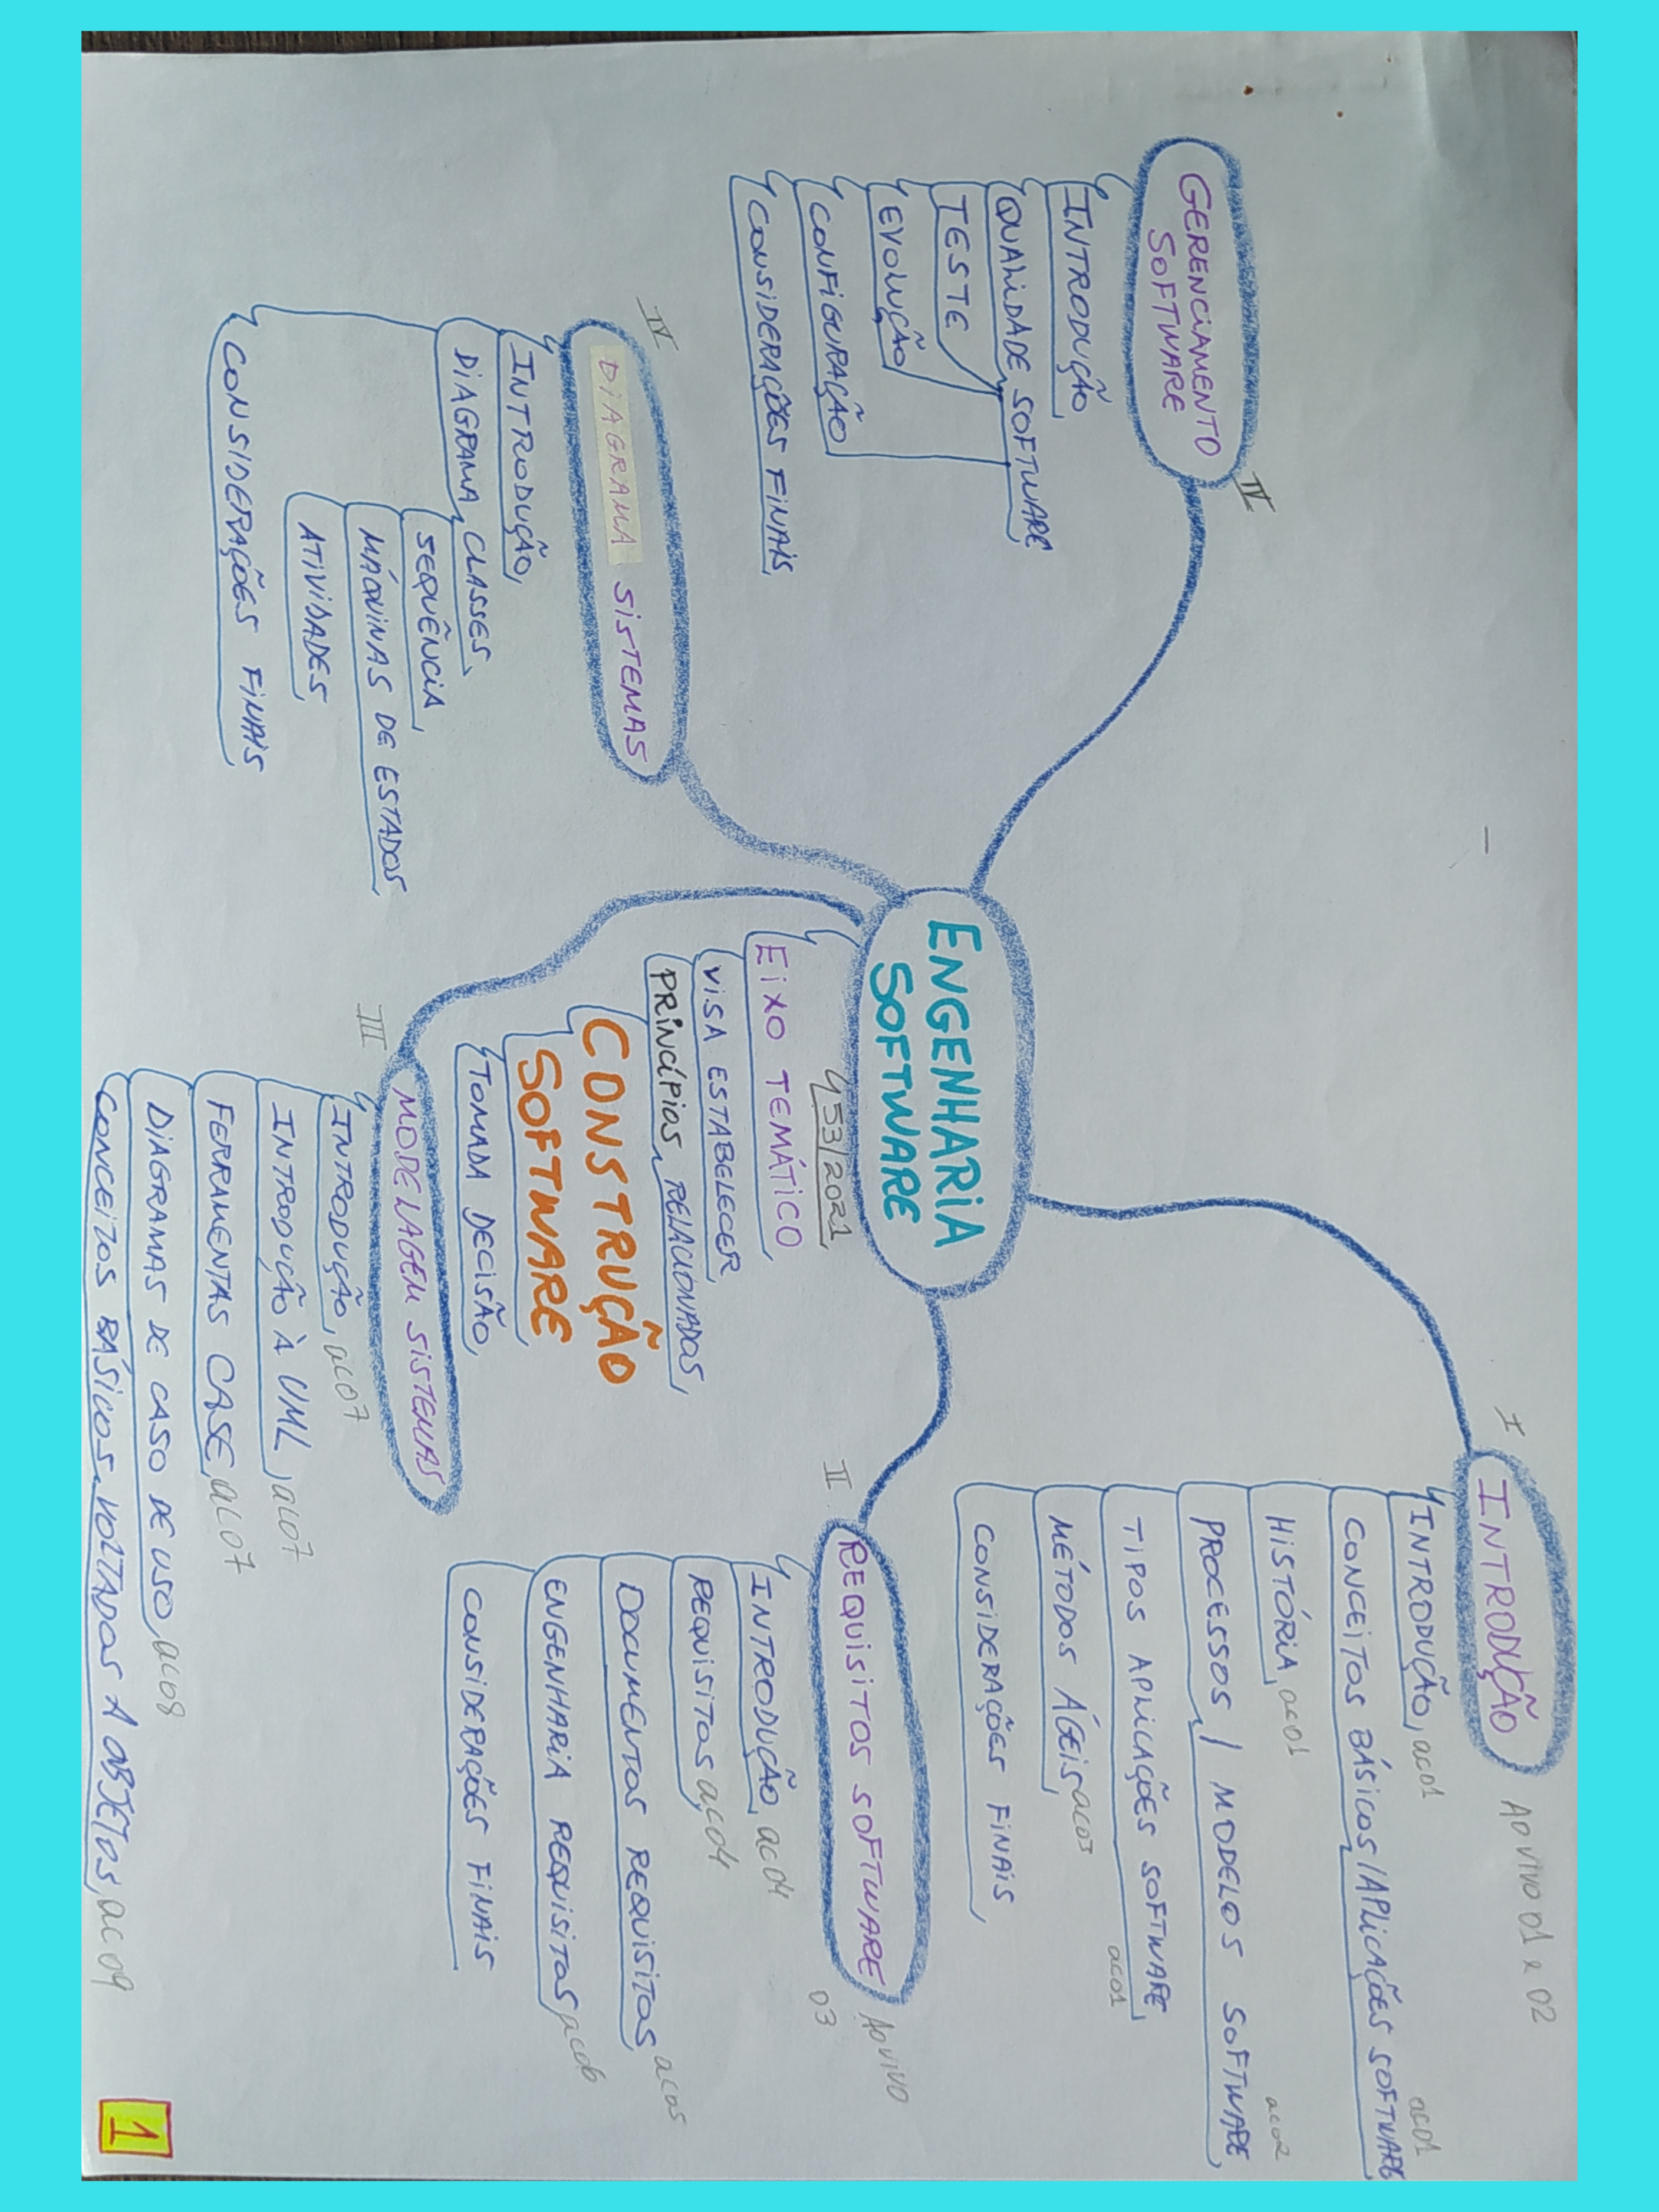 ENGENHARIA
SOFTWARE
53/2021
EIXO TEMÁTICO
VISA ESTABELECER
PRINCÍPIOS RELACIONADOS
CONSTRUÇÃO
SOFTWARE
TOMADA DECISÃO
I
INTRODUÇÃO
AO VIVO 01 e 02
INTRODUÇÃO ac01
ac01
CONCEITOS BÁSICOS / APLICAÇÕES SOFTWARE
HISTÓRIA ac01
ac02
PROCESSOS / MODELOS SOFTWARE
TIPOS APLICAÇÕES SOFTWARE
ac01
MÉTODOS ÁGEIS ac03
CONSIDERAÇÕES FINAIS
II
REQUISITOS SOFTWARE
AO VIVO
03
INTRODUÇÃO ac04
REQUISITOS ac04
DOCUMENTOS REQUISITOS ac05
ENGENHARIA REQUISITOS ac06
CONSIDERAÇÕES FINAIS
III
MODELAGEM SISTEMAS
INTRODUÇÃO ac07
INTRODUÇÃO À UML ac07
FERRAMENTAS CASE ac07
DIAGRAMAS DE CASO DE USO ac08
CONCEITOS BÁSICOS VOLTADOS A OBJETOS ac09
IV
DIAGRAMA SISTEMAS
INTRODUÇÃO
DIAGRAMA CLASSES
SEQUÊNCIA
MÁQUINAS DE ESTADOS
ATIVIDADES
CONSIDERAÇÕES FINAIS
IV
GERENCIAMENTO
SOFTWARE
INTRODUÇÃO
QUALIDADE SOFTWARE
TESTE
EVOLUÇÃO
CONFIGURAÇÃO
CONSIDERAÇÕES FINAIS
1